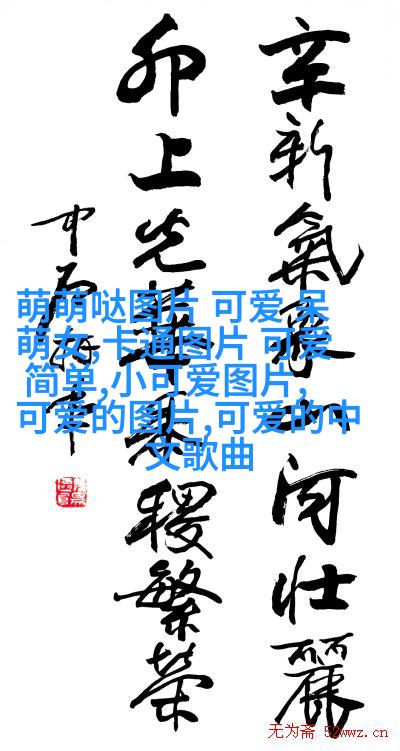 辛新氣象山河壯麗
卯上光稷繁榮
中石
萌萌哒图片 可爱 呆
萌女,卡通图片 可爱
简单,小可爱图片,
可爱的图片,可爱的中
文歌曲
无为斋 52wwz.cn